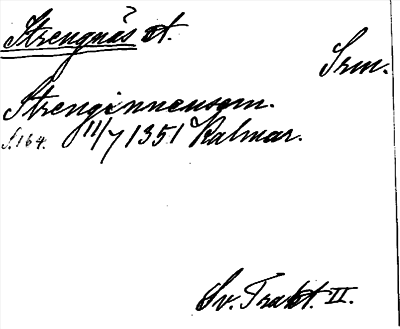 Strengnäs st.
Srm.
Strenginnensem.
s. 164. 11/7 1351 Kalmar.
Sv. Trakt. II.